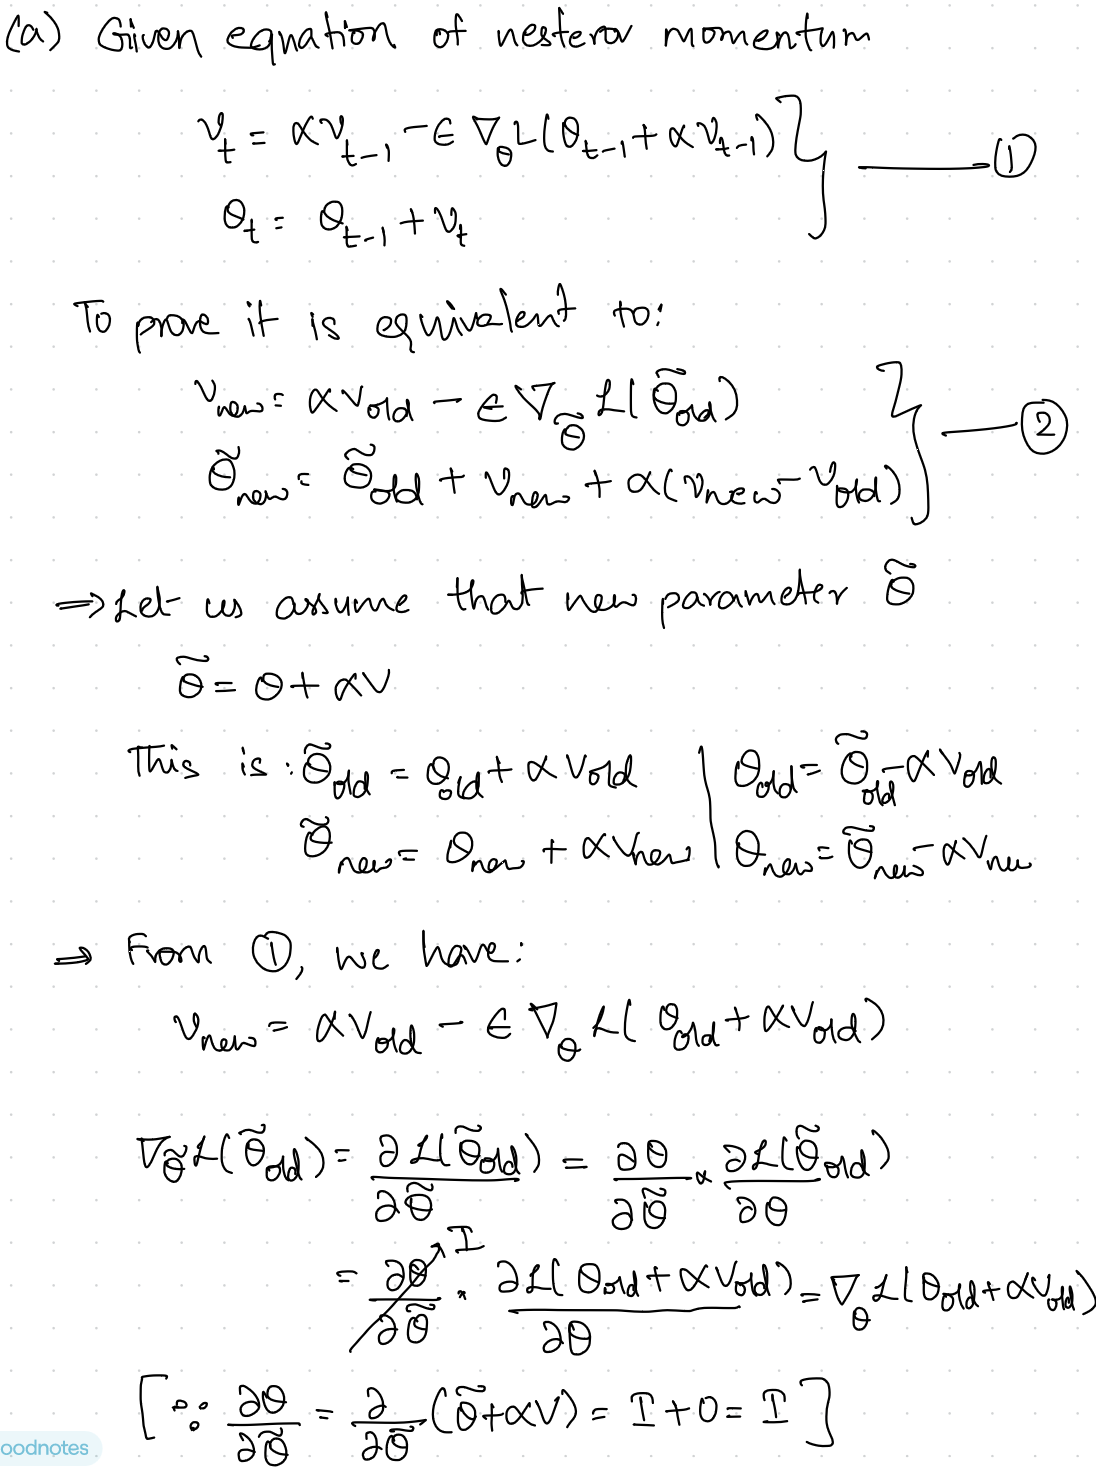 (a) Given equation of nesterov momentum
v_t = αv_{t-1} - ε ∇_θ L(θ_{t-1} + αv_{t-1})
θ_t = θ_{t-1} + v_t } —— ①
To prove it is equivalent to:
v_new = αv_old - ε ∇_θ̃ L(θ̃_old)
θ̃_new = θ̃_old + v_new + α(v_new - v_old) } —— ②
⇒ Let us assume that new parameter θ̃
θ̃ = θ + αv
This is : θ̃_old = θ_old + αv_old | θ_old = θ̃_old - αv_old
θ̃_new = θ_new + αv_new | θ_new = θ̃_new - αv_new
⇒ From ①, we have:
v_new = αv_old - ε ∇_θ L(θ_old + αv_old)
∇_θ̃ L(θ̃_old) = ∂L(θ̃_old)/∂θ̃ = ∂θ/∂θ̃ × ∂L(θ̃_old)/∂θ
= ∂θ/∂θ̃ ↗ I · ∂L(θ_old + αv_old)/∂θ = ∇_θ L(θ_old + αv_old)
[∵ ∂θ/∂θ̃ = ∂/∂θ̃ (θ̃ + αv) = I + 0 = I]
oodnotes